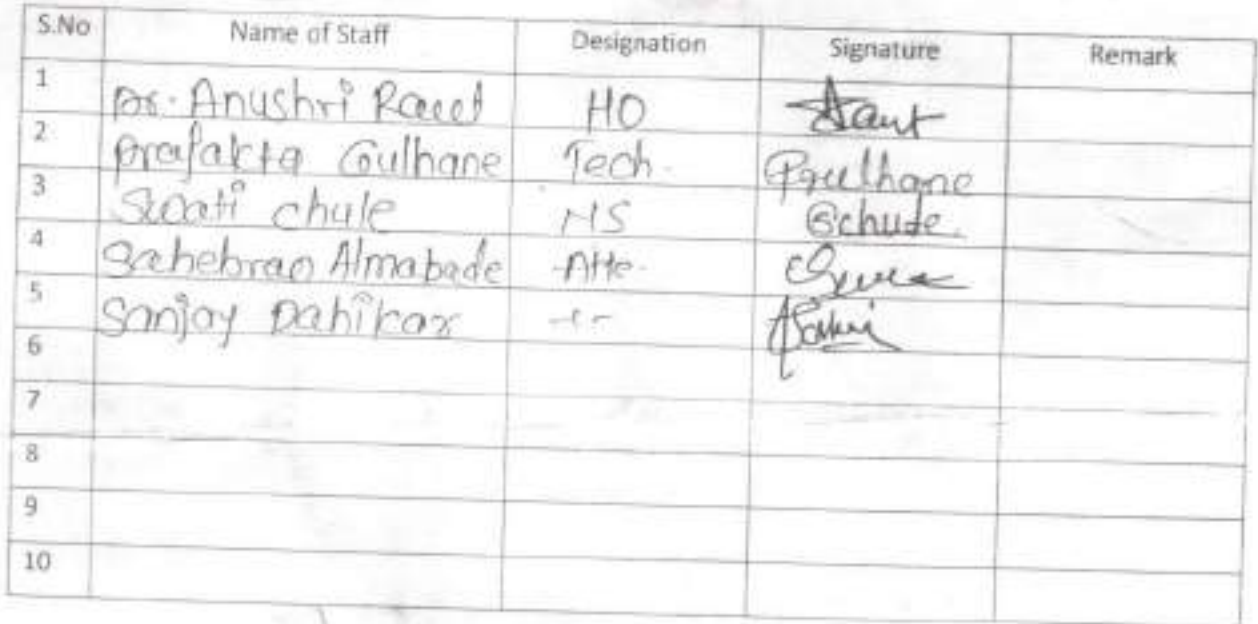 S.No Name of Staff Designation Signature Remark
1 Dr. Anushri Raut HO Raut
2 Prajakta Gulhane Tech. PGulhane
3 Swati chule NS Schule
4 Sahebrao Almabade Atte.
5 Sanjay Dahikar -"-
6
7
8
9
10